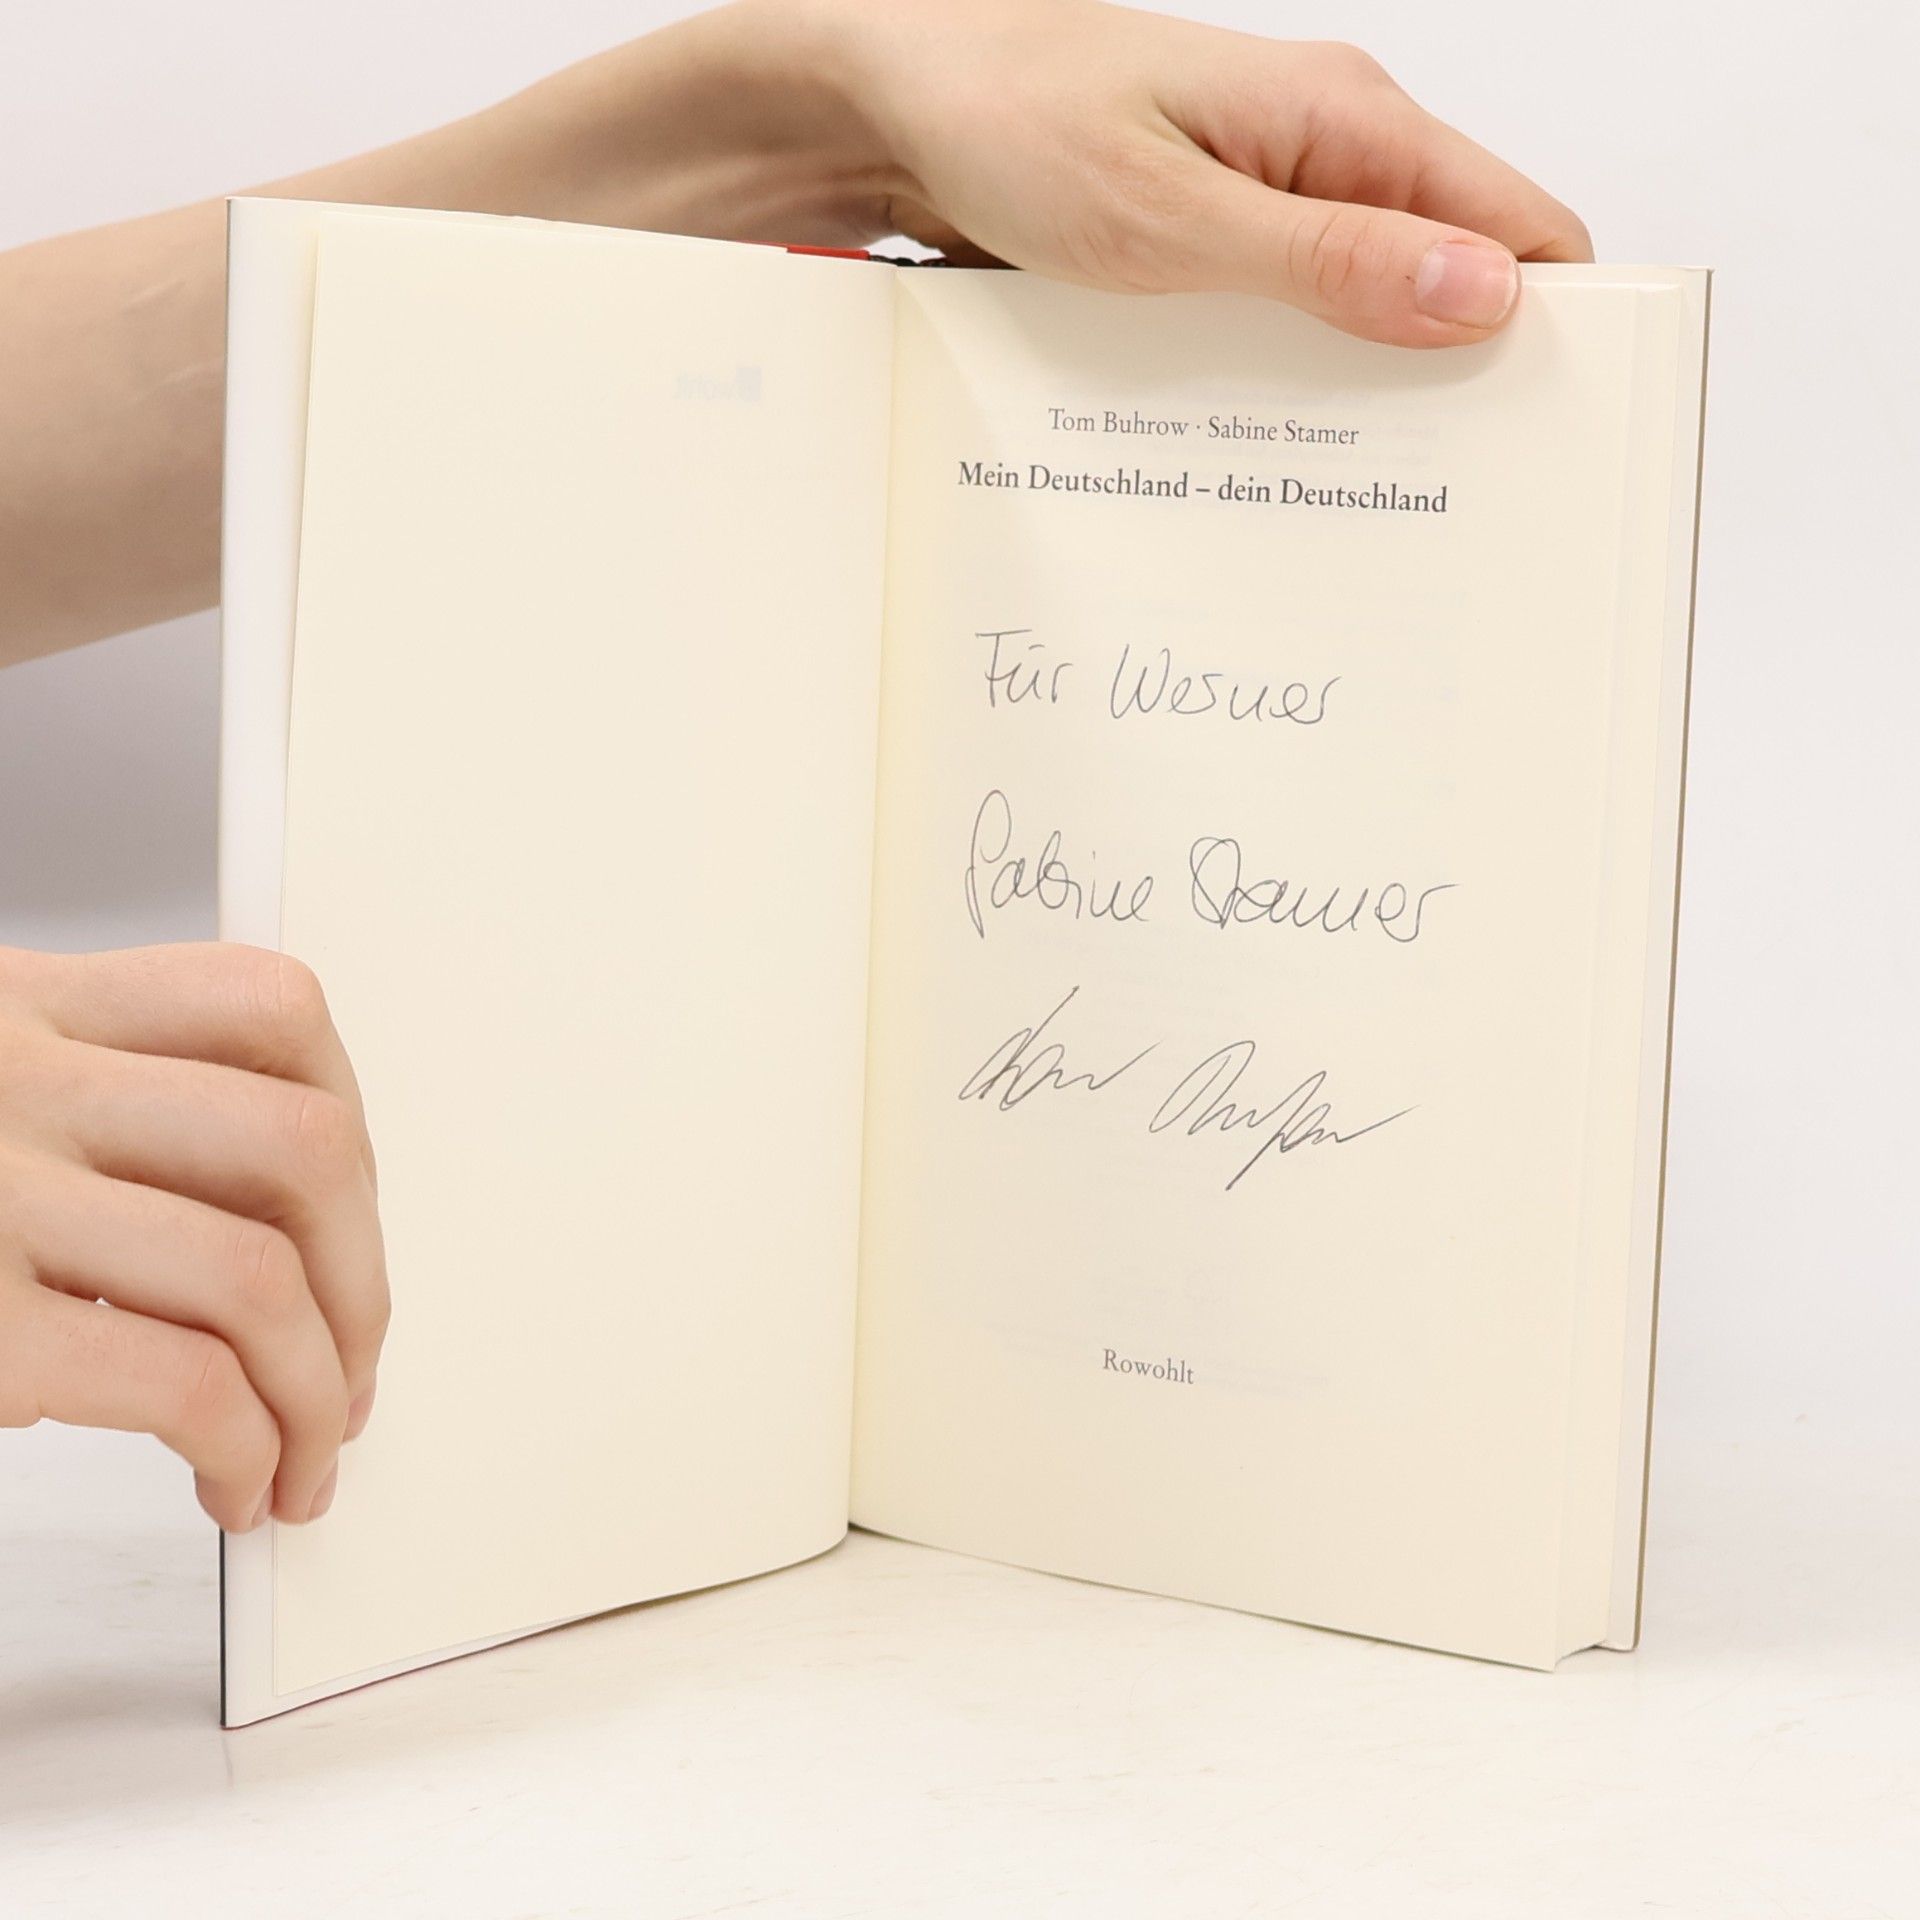 Tom Buhrow · Sabine Stamer
Mein Deutschland – dein Deutschland
Für Werner
Sabine Stamer
Tom Buhrow
Rowohlt